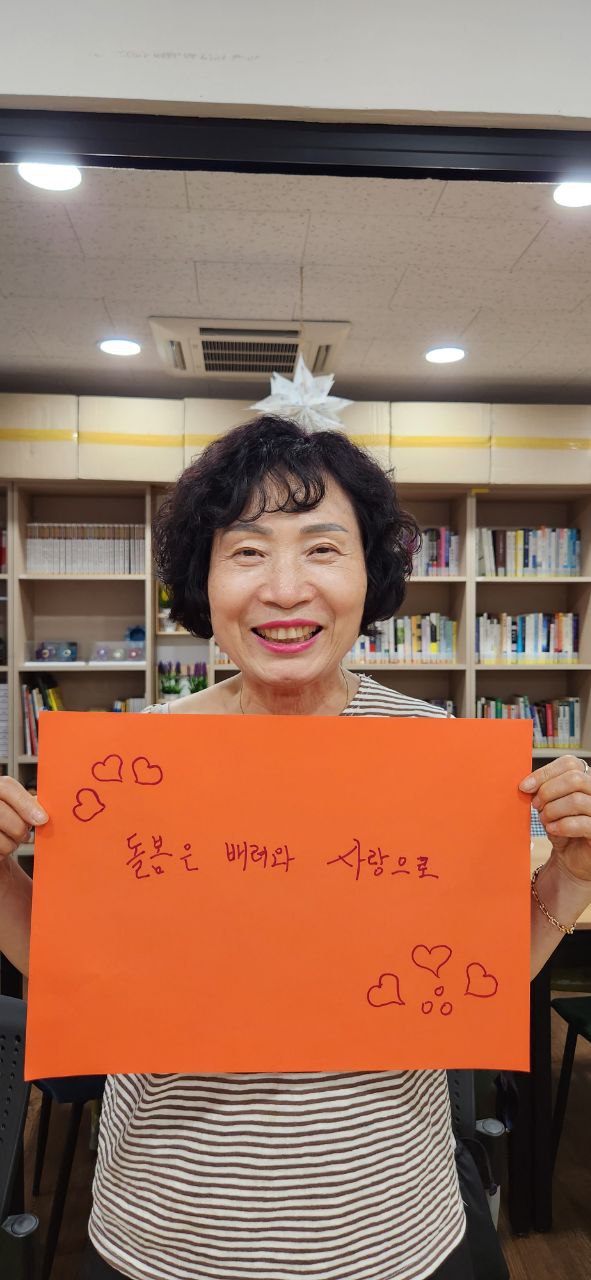 돌봄은 배려와 사랑으로